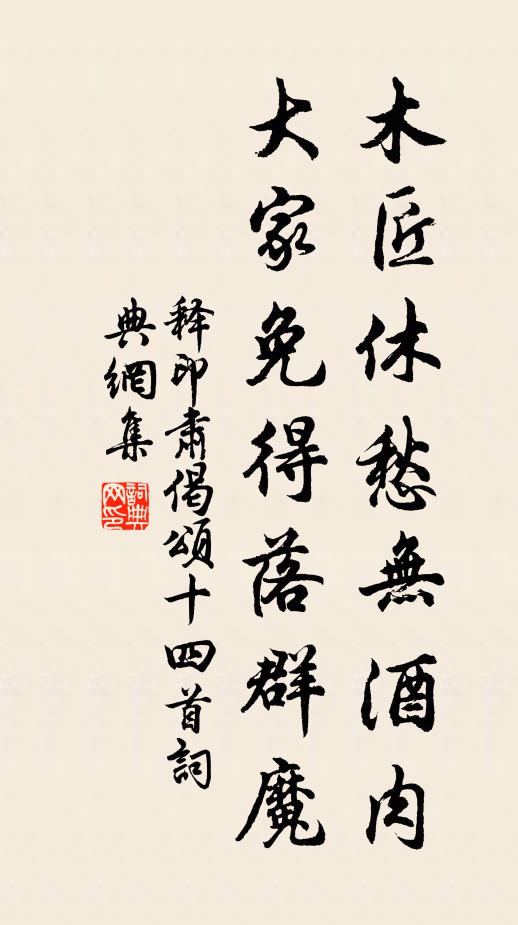 木匠休愁無酒肉
大家免得落群魔
释印肅偈頌十四首詞
典網集
詞典
网印